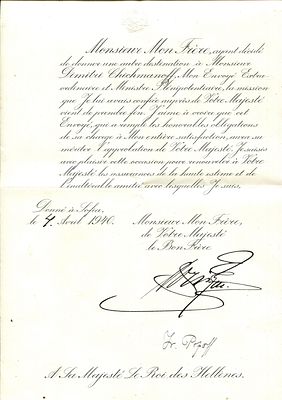 Monsieur Mon Frère, ayant décidé
de donner une autre destination à Monsieur
Démitri Chichmanoff, Mon Envoyé Extra-
ordinaire et Ministre Plénipotentiaire, la mission
que Je lui avais confiée auprès de Votre Majesté
vient de prendre fin. J'aime à croire que cet
Envoyé, qui a rempli les honorables obligations
de sa charge à Mon entière satisfaction, aura su
mériter l'approbation de Votre Majesté. Je saisis
avec plaisir cette occasion pour renouveler à Votre
Majesté les assurances de la haute estime et de
l'inaltérable amitié avec lesquelles Je suis,
Donné à Sofia,
le 4 Août 1940.
Monsieur Mon Frère,
de Votre Majesté
le Bon Frère
Iv. Popoff
A Sa Majesté Le Roi des Hellènes.